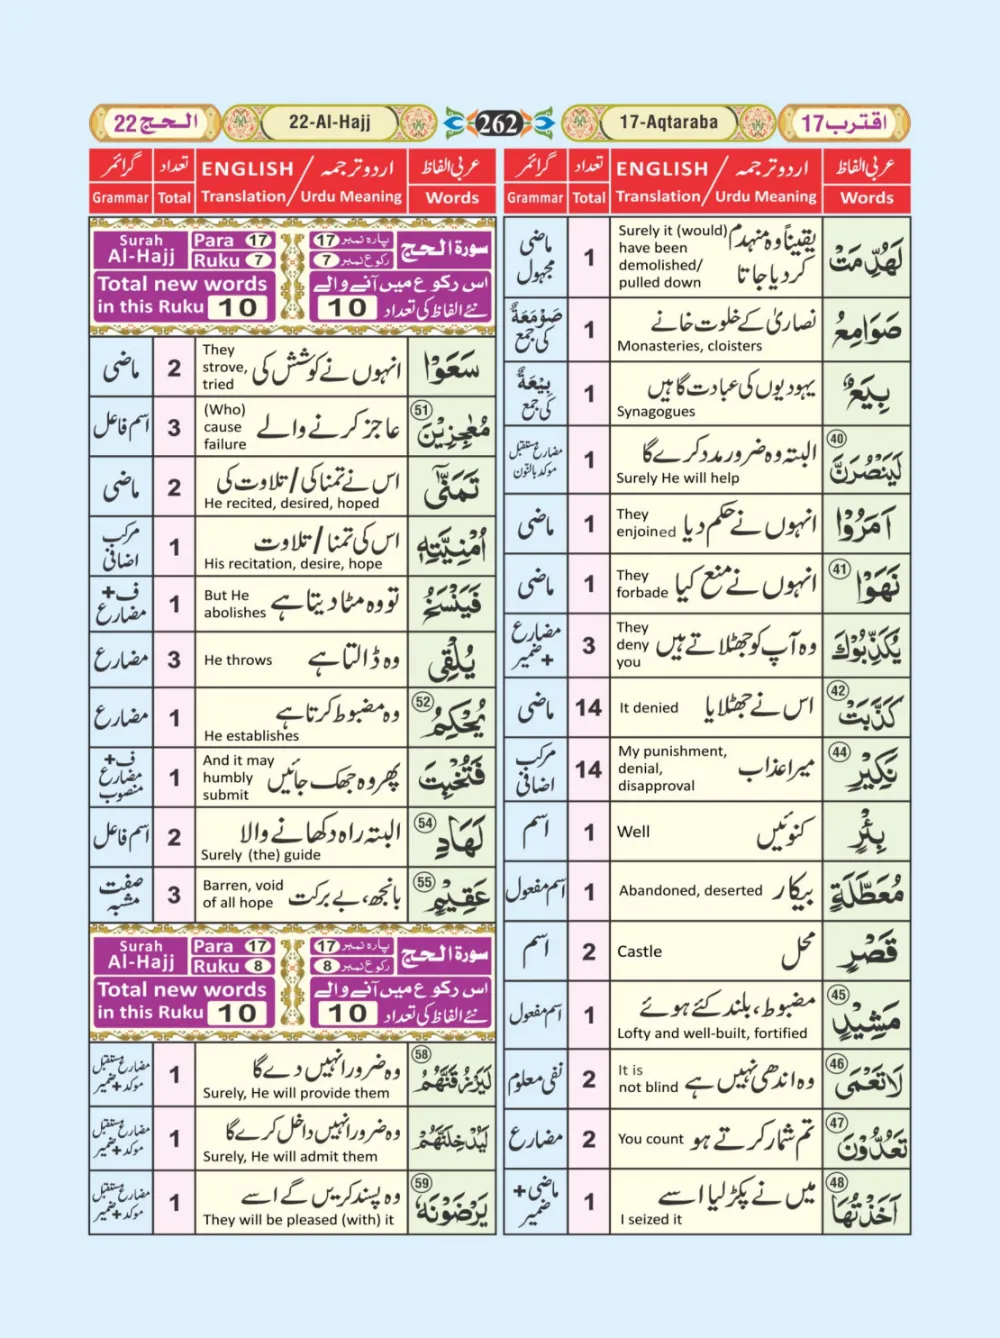 اقترب 17
17-Aqtaraba
262
22-Al-Hajj
الحج 22
عربی الفاظ
اردو ترجمہ / ENGLISH
تعداد
گرائمر
Words
Translation / Urdu Meaning
Total
Grammar
لَهُدِّمَتْ
یقیناً وہ منہدم کر دیا جاتا
Surely it (would) have been demolished/ pulled down
1
ماضی مجہول
صَوَامِعُ
نصاریٰ کے خلوت خانے
Monasteries, cloisters
1
صَوْمَعَةٌ کی جمع
بِيَعٌ
یہودیوں کی عبادت گاہیں
Synagogues
1
بِيْعَةٌ کی جمع
40
لَيَنْصُرَنَّ
البتہ وہ ضرور مدد کرے گا
Surely He will help
1
مضارع مستقبل موکد بالنون
اَمَرُوْا
انہوں نے حکم دیا
They enjoined
1
ماضی
41
نَهَوْا
انہوں نے منع کیا
They forbade
1
ماضی
يُكَذِّبُوْكَ
وہ آپ کو جھٹلاتے ہیں
They deny you
3
مضارع + ضمیر
42
كَذَّبَتْ
اس نے جھٹلایا
It denied
14
ماضی
44
نَكِيْرِ
میرا عذاب
My punishment, denial, disapproval
14
مرکب اضافی
بِئْرٍ
کنوئیں
Well
1
اسم
مُعَطَّلَةٍ
بیکار
Abandoned, deserted
1
اسم مفعول
قَصْرٍ
محل
Castle
2
اسم
45
مَشِيْدٍ
مضبوط، بلند کئے ہوئے
Lofty and well-built, fortified
1
اسم مفعول
46
لَا تَعْمَى
وہ اندھی نہیں ہے
It is not blind
2
نفی معلوم
47
تَعُدُّوْنَ
تم شمار کرتے ہو
You count
2
مضارع
48
اَخَذْتُهَا
میں نے پکڑ لیا اسے
I seized it
1
ماضی + ضمیر
عربی الفاظ
اردو ترجمہ / ENGLISH
تعداد
گرائمر
Words
Translation / Urdu Meaning
Total
Grammar
Surah Al-Hajj
Para 17
Ruku 7
پارہ نمبر 17
رکوع نمبر 7
سورة الحج
Total new words
in this Ruku 10
اس رکوع میں آنے والے
نئے الفاظ کی تعداد 10
سَعَوْا
انہوں نے کوشش کی
They strove, tried
2
ماضی
51
مُعٰجِزِيْنَ
عاجز کرنے والے
(Who) cause failure
3
اسم فاعل
تَمَنّٰٓى
اس نے تمنا کی / تلاوت کی
He recited, desired, hoped
2
ماضی
اُمْنِيَّتِهٖ
اس کی تمنا / تلاوت
His recitation, desire, hope
1
مرکب اضافی
فَيَنْسَخُ
تو وہ مٹا دیتا ہے
But He abolishes
1
ف + مضارع
يُلْقِى
وہ ڈالتا ہے
He throws
3
مضارع
52
يُحْكِمُ
وہ مضبوط کرتا ہے
He establishes
1
مضارع
فَتُخْبِتَ
پھر وہ جھک جائیں
And it may humbly submit
1
ف + مضارع منصوب
54
لَهَادِ
البتہ راہ دکھانے والا
Surely (the) guide
2
اسم فاعل
55
عَقِيْمٍ
بانجھ، بے برکت
Barren, void of all hope
3
صفت مشبہ
Surah Al-Hajj
Para 17
Ruku 8
پارہ نمبر 17
رکوع نمبر 8
سورة الحج
Total new words
in this Ruku 10
اس رکوع میں آنے والے
نئے الفاظ کی تعداد 10
58
لَيَرْزُقَنَّهُمْ
وہ ضرور انہیں دے گا
Surely, He will provide them
1
مضارع مستقبل موکد + ضمیر
لَيُدْخِلَنَّهُمْ
وہ ضرور انہیں داخل کرے گا
Surely, He will admit them
1
مضارع مستقبل موکد + ضمیر
59
يَرْضَوْنَهٗ
وہ پسند کریں گے اسے
They will be pleased (with) it
1
مضارع مستقبل موکد + ضمیر